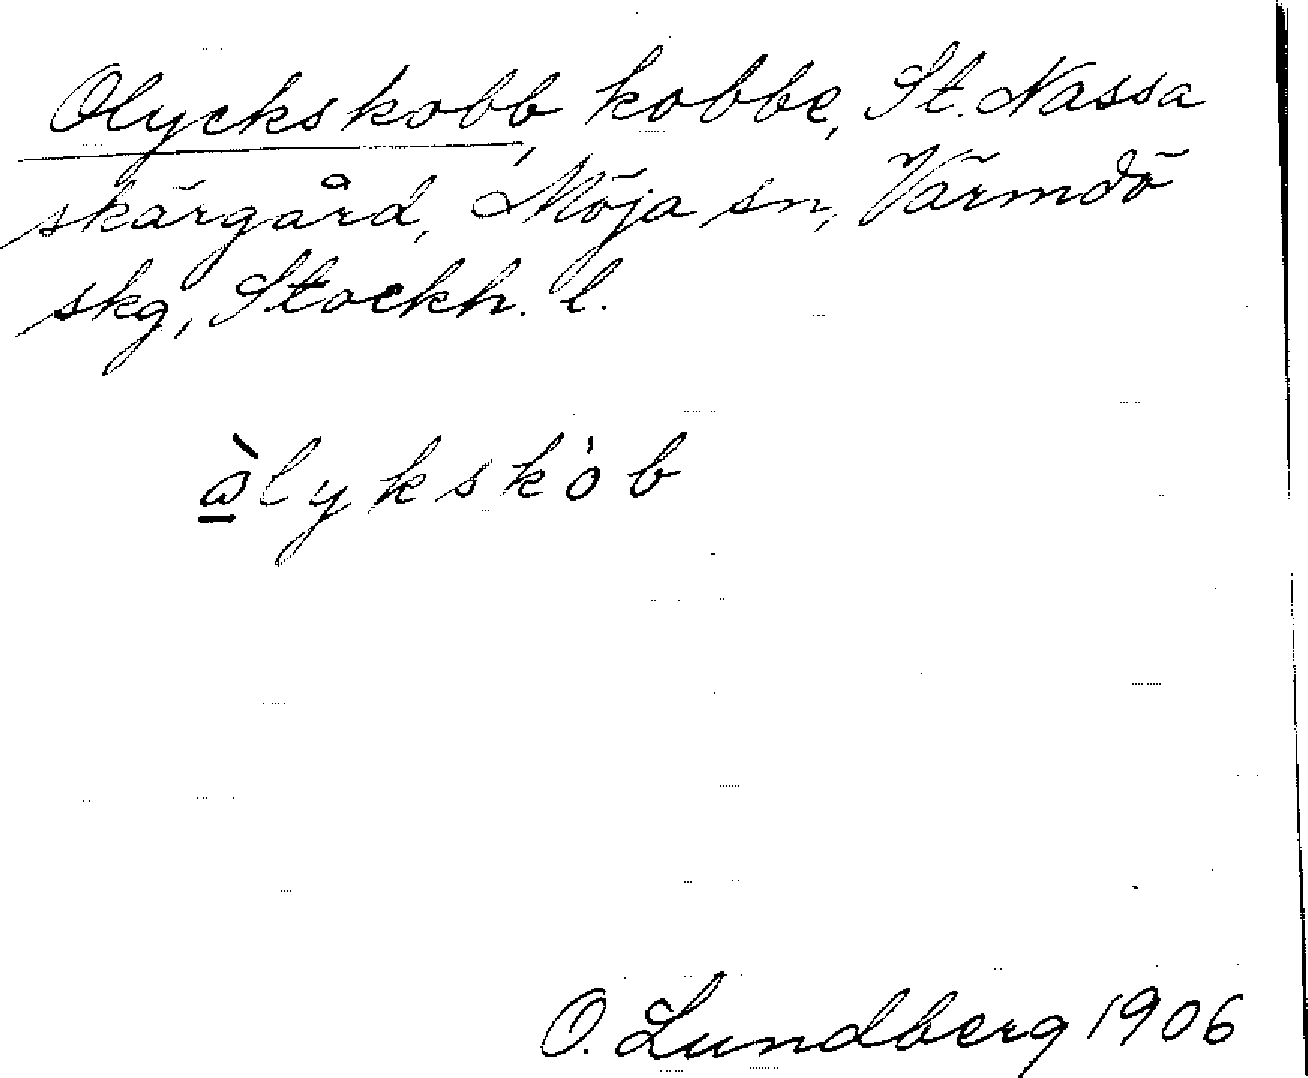 Olyckskobb, kobbe, St. Nassa
skärgård, Möja sn, Värmdö
skg, Stockh. l.
ὼ̲lykskòb
O. Lundberg 1906